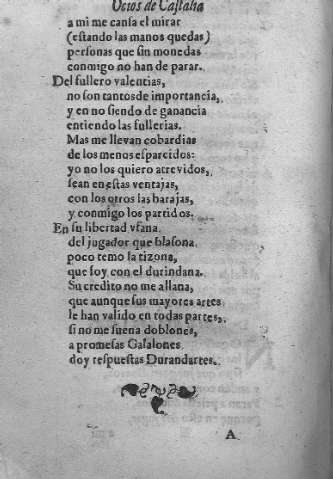 Ocios de Castalia
a mi me cansa el mirar
(estando las manos quedas)
personas que sin monedas
conmigo no han de parar.
Del fullero valentias,
no son tantos de importancia,
y en no siendo de ganancia
entiendo las fullerias.
Mas me llevan cobardias
de los menos esparcidos:
yo no los quiero atrevidos,
sean en estas ventajas,
con los otros las barajas,
y conmigo los partidos.
En su libertad vfana
del jugador que blasona
poco temo la tizona,
que soy con el durindana.
Su credito no me allana,
que aunque sus mayores artes
le han valido en todas partes,
si no me suena doblones,
a promesas Galalones
doy respuestas Durandartes.
A